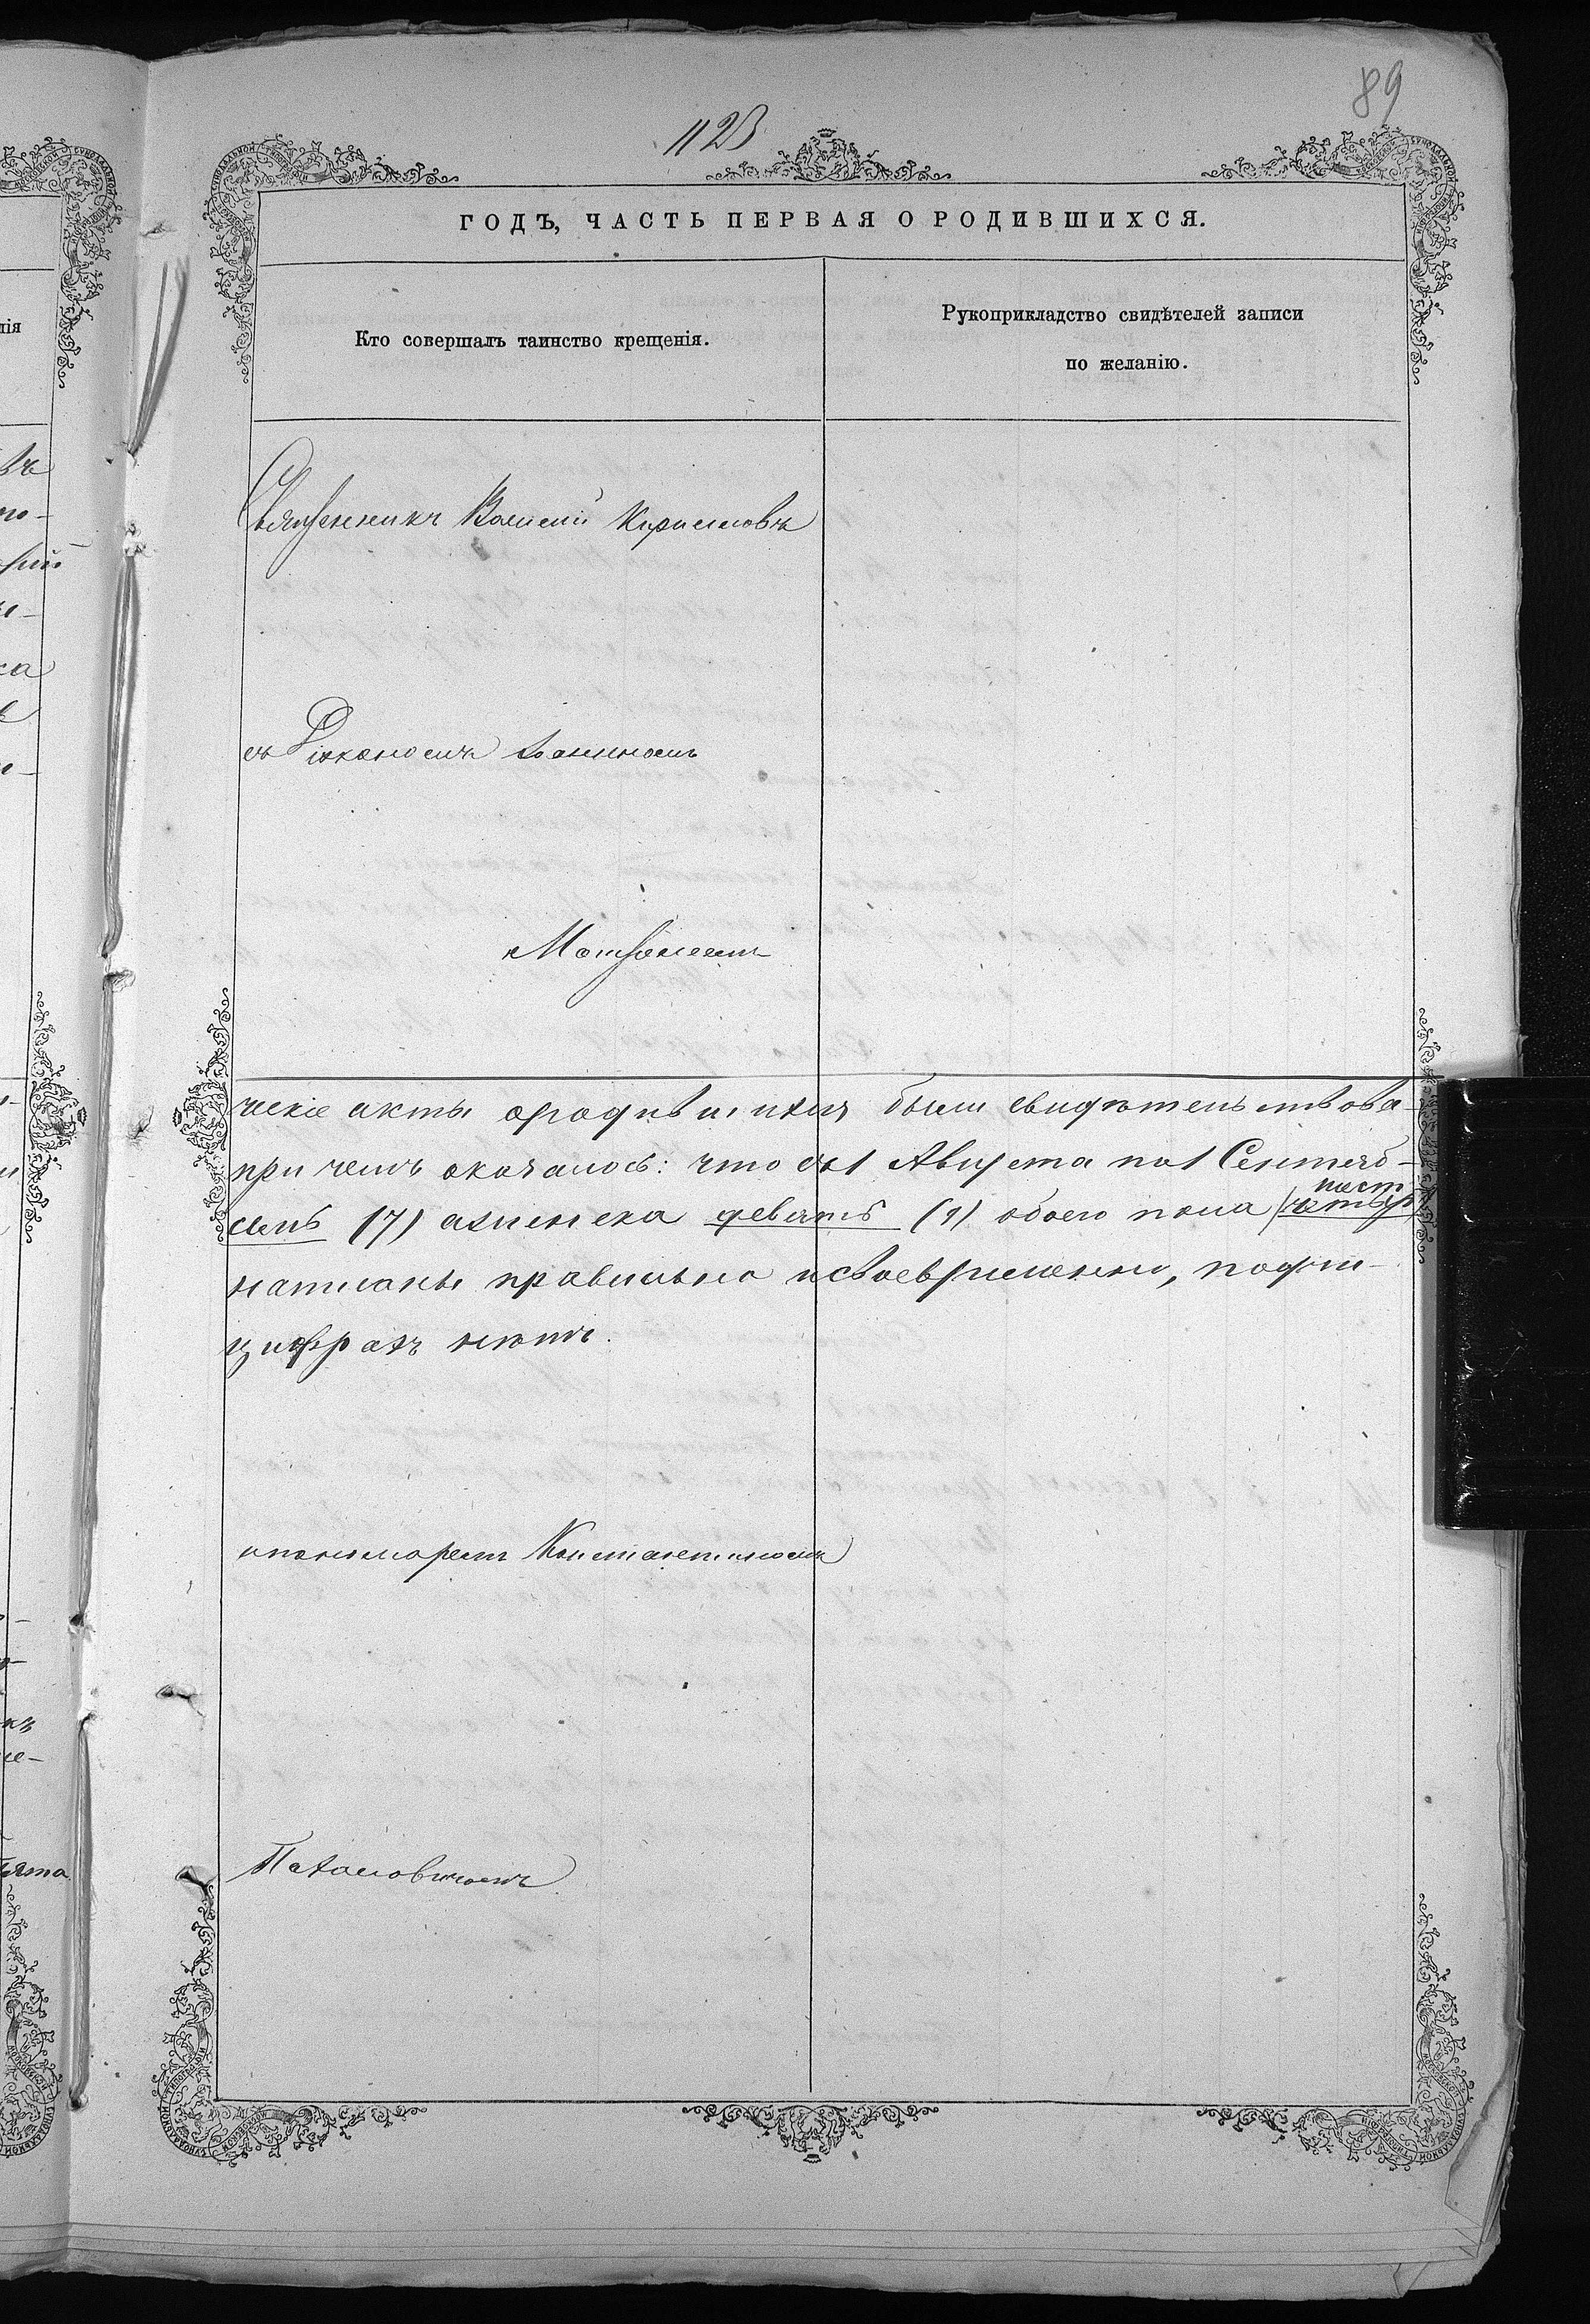 89
1123
ГОДЪ, ЧАСТЬ ПЕРВАЯ О РОДИВШИХСЯ.
Кто совершалъ таинство крещенія.
Рукоприкладство свидѣтелей записи
по желанію.
Священникъ Василій Кириловъ
съ Діакономъ Іоанномъ
ческіе акты ородившихся были свидѣтельствова-
при чемъ оказалось: что съ 1 Августа по 1 Сентяб-
семь (7) аженска девять (9) обоего пола
написаны правильно исвоевременно, подчи-
цифрахъ нѣтъ.
ипономаремъ Константиномъ